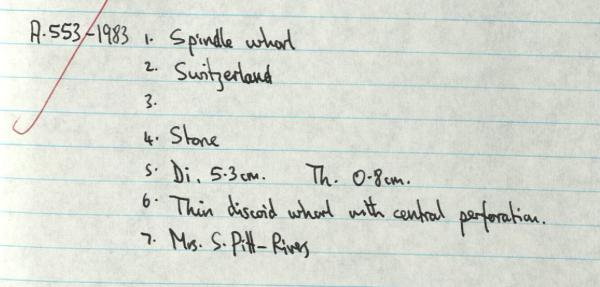 A.553-1983 1. Spindle whorl
2. Switzerland
3.
4. Stone
5. Di. 5.3cm. Th. 0.8cm.
6. Thin discoid whorl with central perforation.
7. Mrs. S. Pitt-Rivers